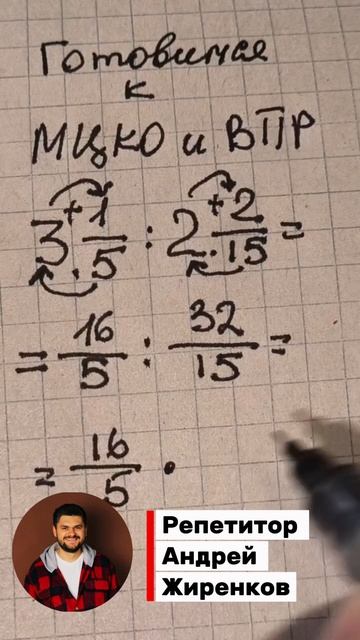 Готовимся
к
МЦКО и ВПР
3 + 1/5 : 2 + 2/15 =
= 16/5 : 32/15 =
= 16/5 ·
Репетитор
Андрей
Жиренков